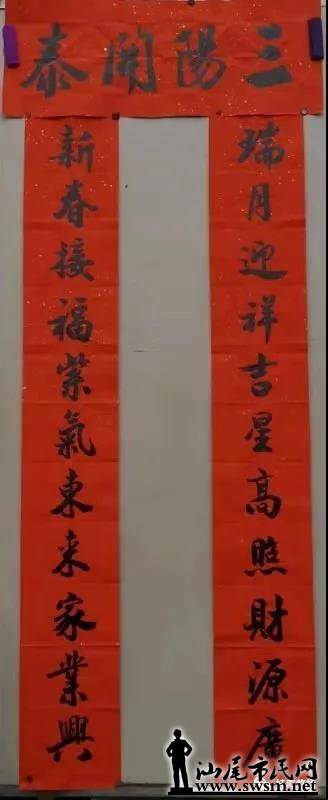 三陽開泰
瑞月迎祥吉星高照財源廣
新春接福紫氣東来家業興
汕尾市民网
www.swsm.net